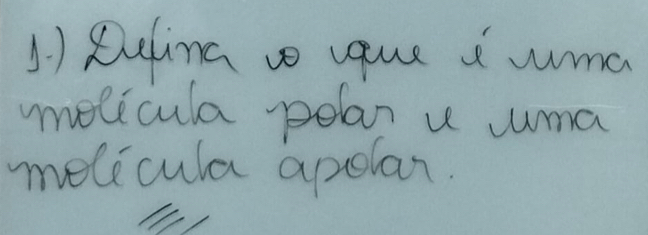 1.) Defina o que é uma
molécula polar e uma
molécula apolar.